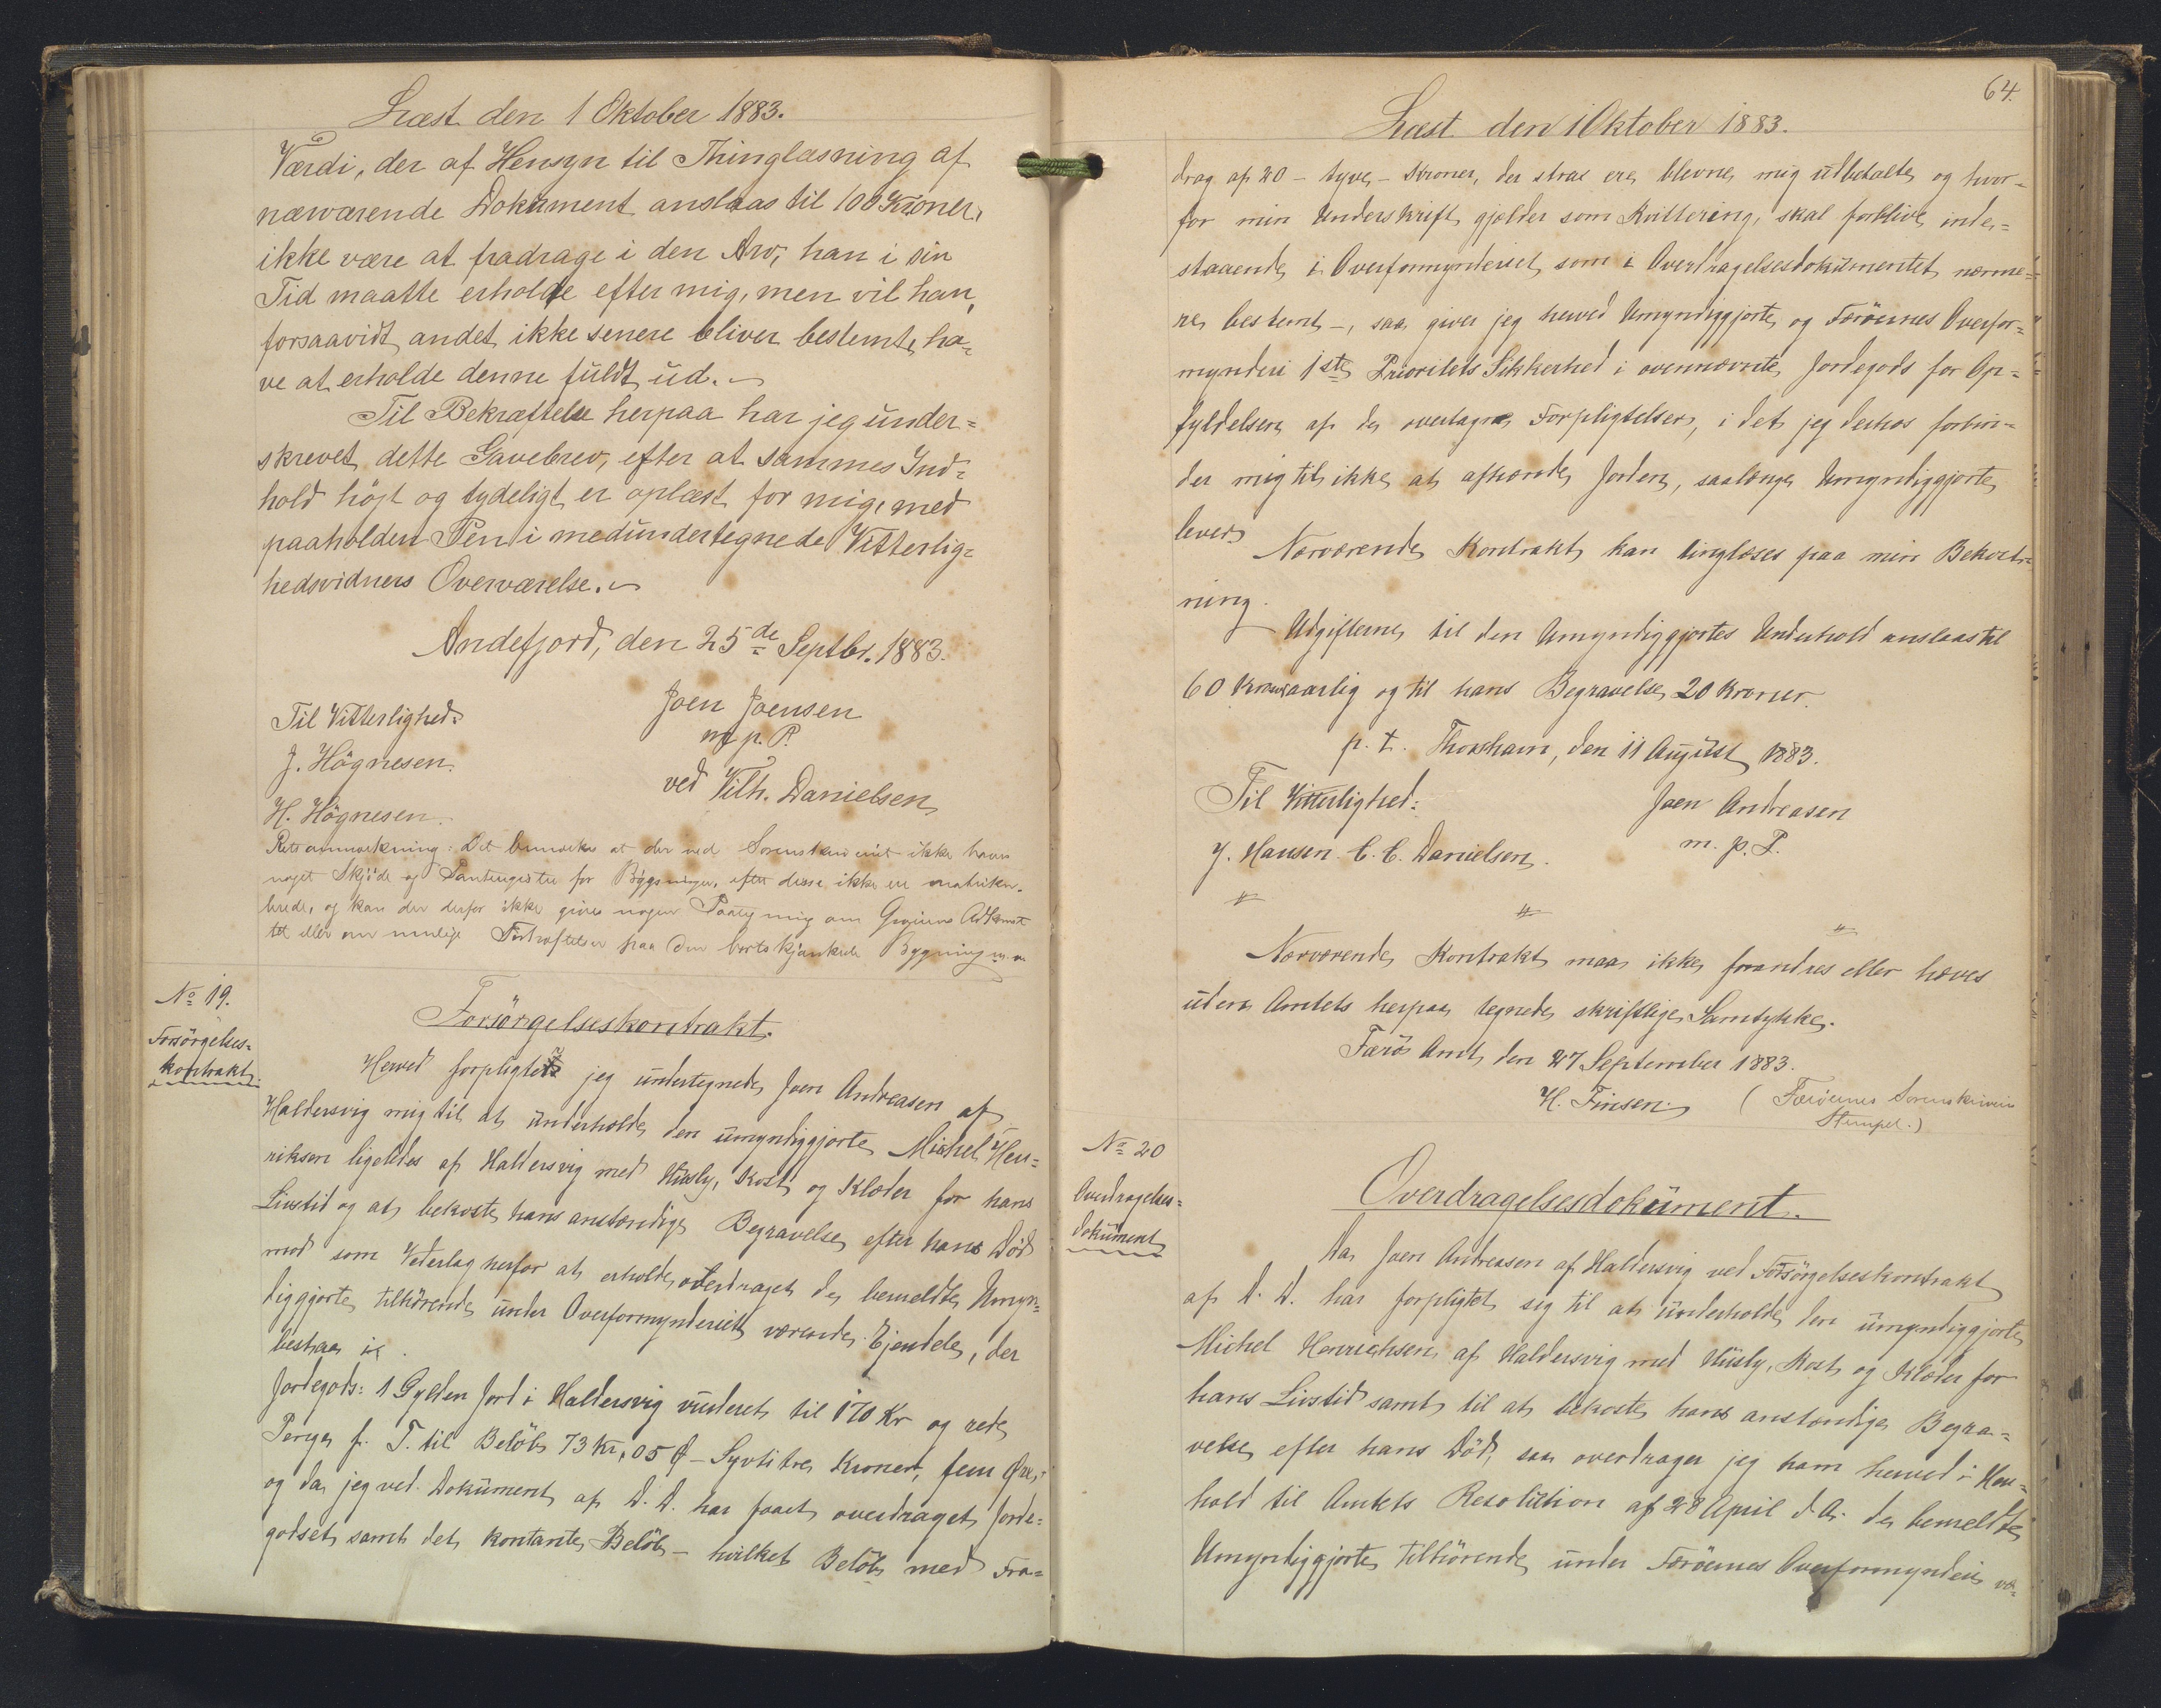 Læst den 1 Oktober 1883.
Værdi, der af Hensyn til Thinglæsning af
nærværende Dokument anslaas til 100 Kroner,
ikke være at fradrage i den Arv, han i sin
Tid maatte erholde efter mig, men vil han,
forsaavidt andet ikke senere bliver bestemt, ha=
ve at erholde denne fuldt ud.
Til Bekræftelse herpaa har jeg under=
skrevet dette Gavebrev, efter at sammes Ind=
hold höjt og tydeligt er oplæst for mig, med
paaholden Pen i medundertegnede Vitterlig=
hedsvidners Overværelse.
Andefjord, den 25de Septbr. 1883.
Til Vitterlighed: Joen Joensen
J. Högnesen. m. p. P.
H. Högnesen. ved Vilh. Danielsen
Retsanmærkning: Det bemærkes at der ved Sorenskriveriet ikke haves
noget Skjöde og Panteregister for Bygninger, efter disse ikke ere matriku-
lerede, og kan der derfor ikke gives nogen Paategning om Giverens Adkomst
til eller om mulige Forhæftelser paa den bortskjænkede Bygning m.m.
No 19.
Forsörgelses=
kontrakt.
Forsörgelseskontrakt.
Herved forpligter jeg undertegnede Joen Andreasen af
Haldersvig mig til at underholde den umyndiggjorte Michel Hen=
riksen ligeledes af Haldersvig med Husly, Kost og Klæder for hans
Livstid og at bekoste hans anstændige Begravelse efter hans Död
mod som Vederlag herfor at erholde overdraget de bemeldte Umyn=
diggjorte tilhörende under Overformynderiet værende Ejendele, der
bestaa i
Jordegods: 1 Gylden Jord i Haldersvig vurderet til 170 Kr og rede
Penge p. T. til Belöb 73 Kr, 05 Ø - Syvti tre Kroner, fem Øre,
og da jeg ved Dokument af D. D. har faaet overdraget Jorde=
godset samt det kontante Belöb - hvilket Belöb med Fra=
64.
Læst den 1 Oktober 1883.
drag af 20 - tyve - Kroner, der strax ere blevne mig udbetalte og hvor=
for min Underskrift gjælder som Kvittering, skal forblive inde=
staaende i Overformynderiet, som i Overdragelsesdokumentet nærme=
re bestemt -, saa giver jeg herved Umyndiggjorte og Færöernes Overfor=
mynderi 1ste Prioritets Sikkerhed i ovennævnte Jordegods for Op=
fyldelsen af de overtagne Forpligtelser, i det jeg derhos forbin=
der mig til ikke at afhænde Jorden, saalænge Umyndiggjorte
lever.
Nærværende Kontrakt kan tinglæses paa min Bekost=
ning.
Udgifterne til den Umyndiggjortes Underhold anslaas til
60 Kroner aarlig og til hans Begravelse 20 Kroner.
p. t. Thorshavn, den 11 August 1883.
Til Vitterlighed: Joen Andreasen
J. Hansen. C. C. Danielsen. m. p. P.
Nærværende Kontrakt maa ikke forandres eller hæves
uden Amtets herpaa tegnede skriftlige Samtykke.
Færö Amt, den 27 September 1883.
H. Finsen. (Færöernes Sorenskriveri
Stempel.)
No 20
Overdragelses=
dokument
Overdragelsesdokument.
Da Joen Andreasen af Haldersvig ved Forsörgelseskontrakt
af D. D. har forpligtet sig til at underholde den umyndiggjorte
Michel Henrichsen af Haldersvig med Husly, Kost og Klæder for
hans Livstid samt til at bekoste hans anstændige Begra=
velse efter hans Död, saa overdrager jeg ham herved i Hen=
hold til Amtets Resolution af 28 April d. A. de bemeldte
Umyndiggjorte tilhörende under Færöernes Overformynderi væ=